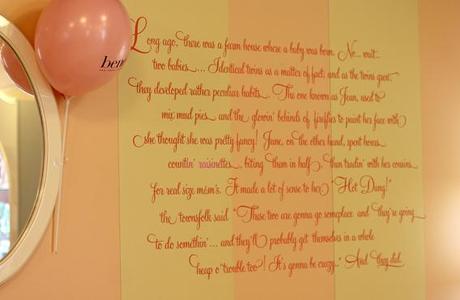 bene
Long ago, there was a farm house where a baby was born. No... wait...
two babies.... Identical twins as a matter of fact; and as the twins grew,
they developed rather peculiar habits. The one known as Jean, used to
mix mud pies... and the glowin' behinds of fireflies to paint her face with
she thought she was pretty fancy! Jane, on the other hand, spent hours
countin' raisinettes... biting them in half... then tradin' with her cousins
for real size m&m's. It made a lot of sense to her. "Hot Dang!"
the townsfolk said "These two are gonna go someplace and they're going
to do somethin'... and they'll probably get themselves in a whole
heap o' trouble too! It's gonna be crazy." And they did.